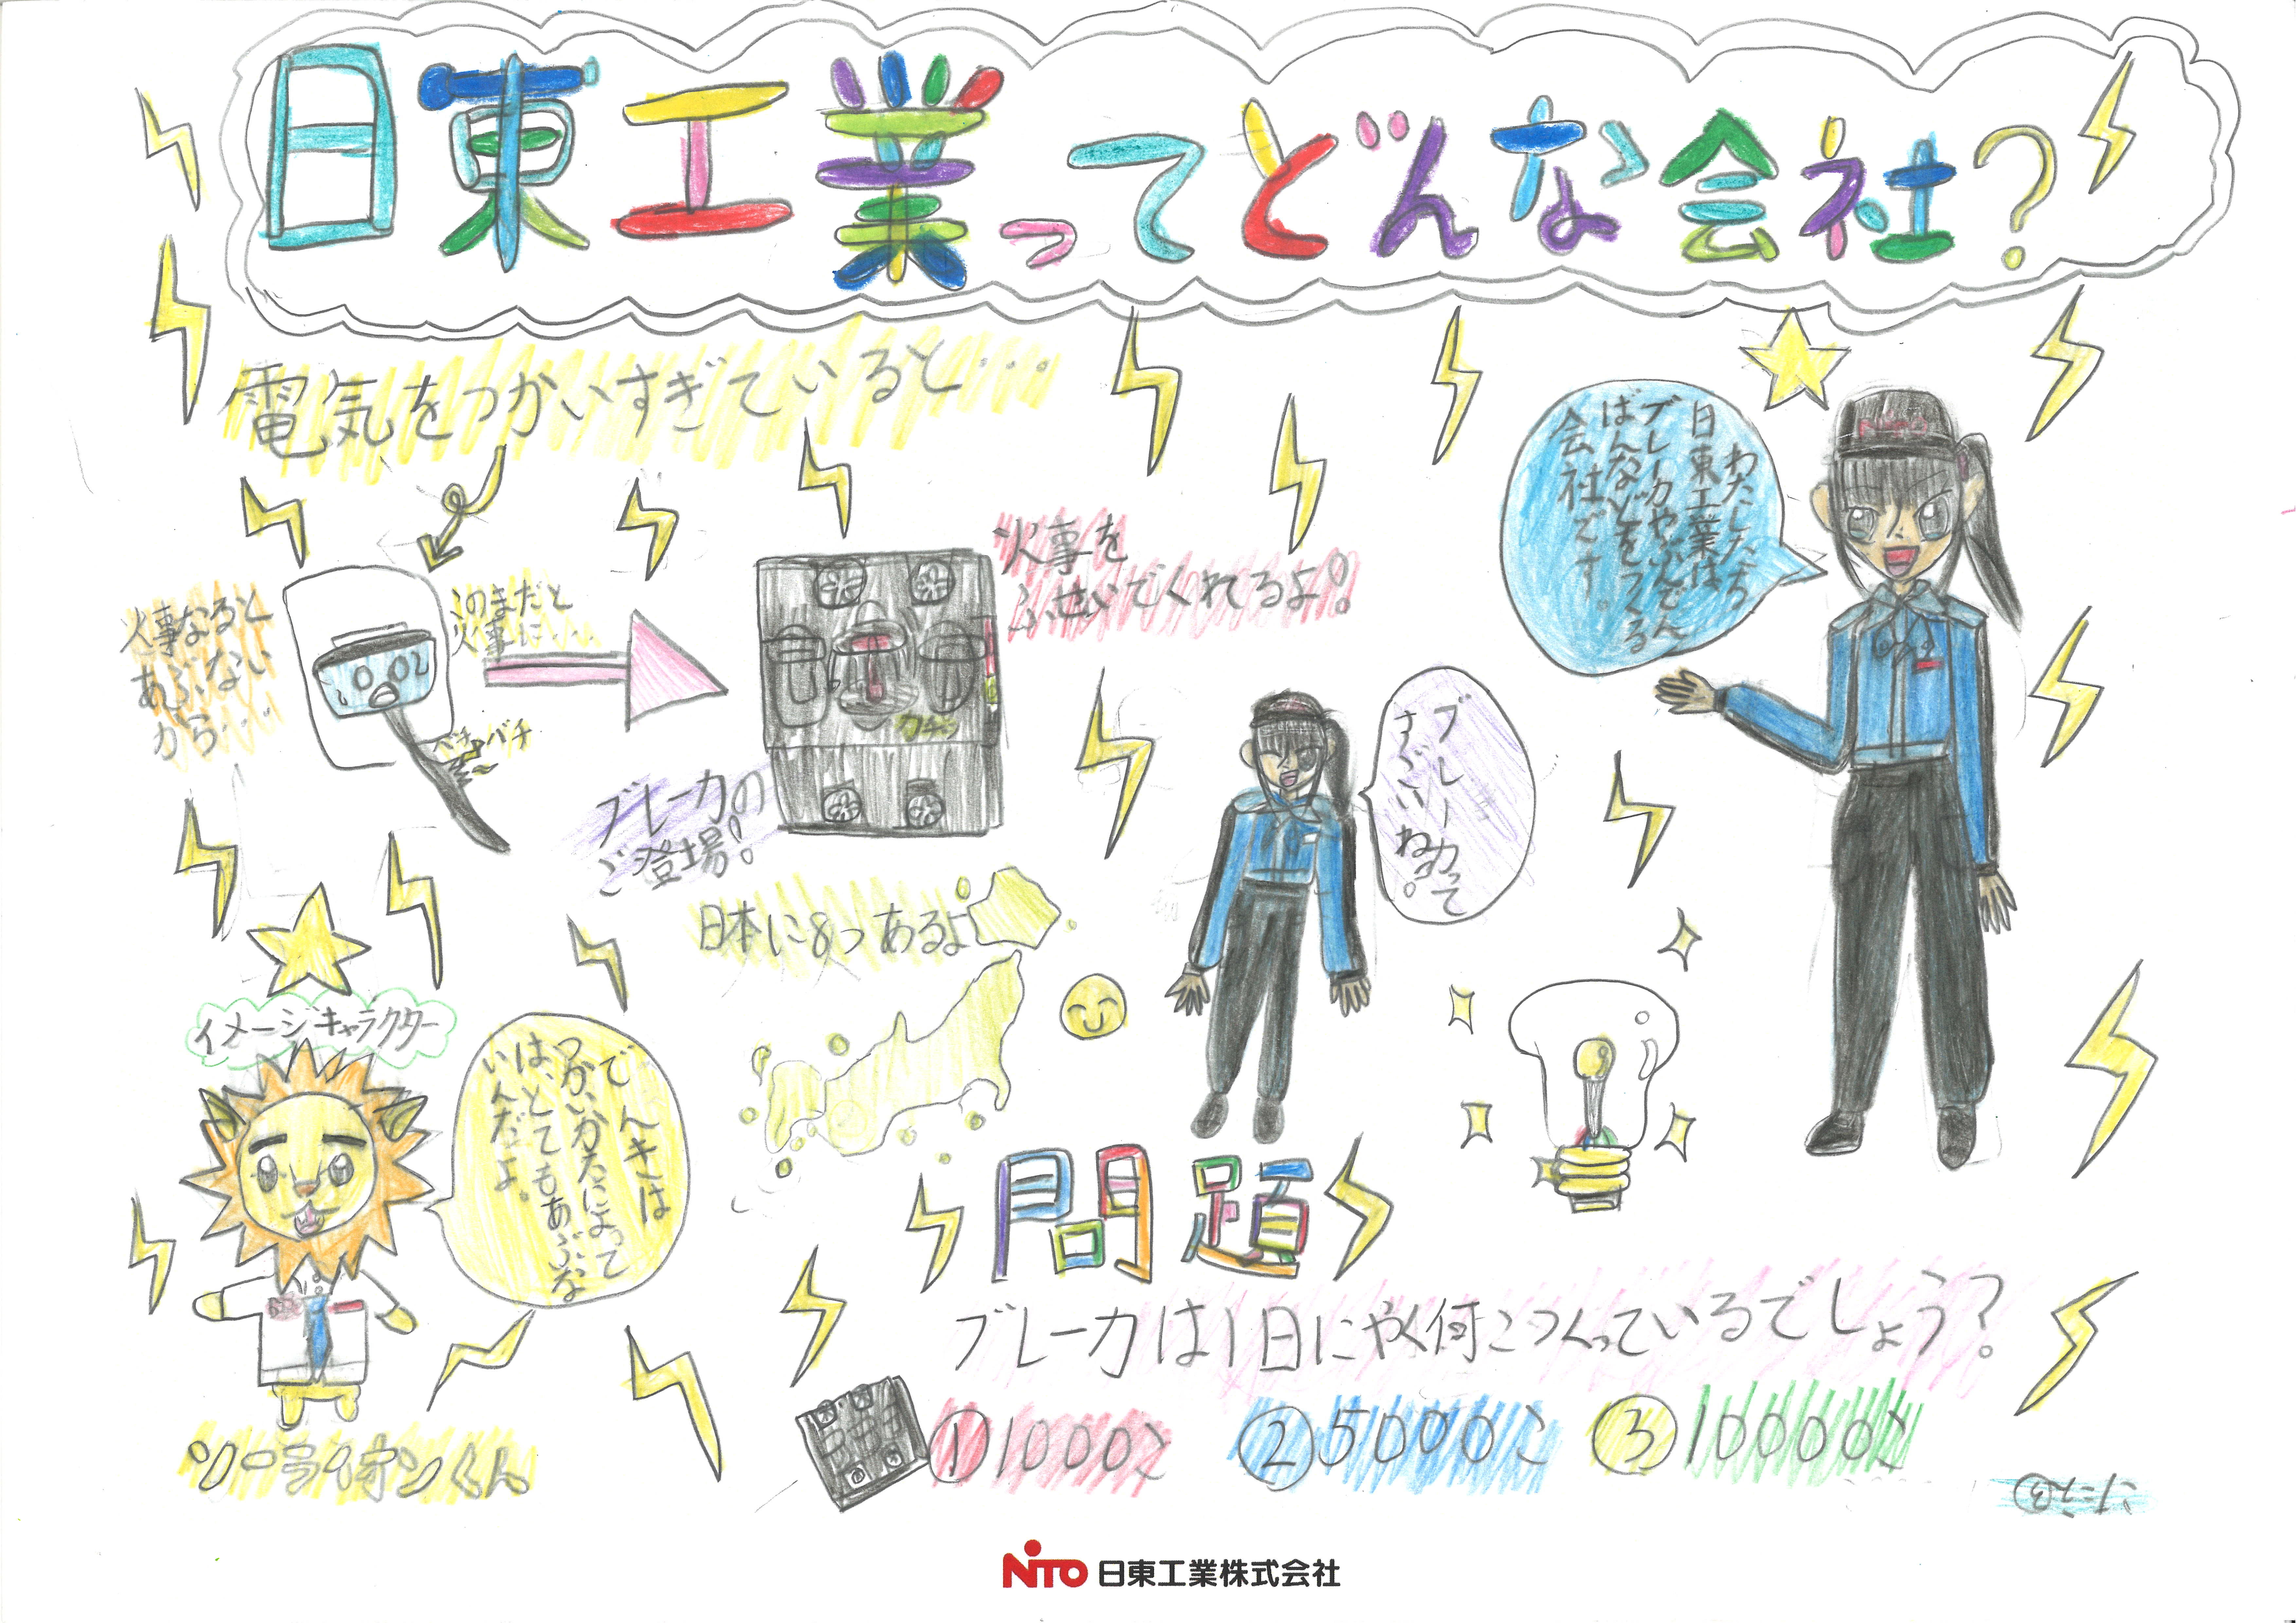 日東工業ってどんな会社?
電気をつかいすぎていると…
わたしたち
日東工業は
ブレーカやぶんでん
ばんなどをつくる
会社です。
NITO
火事なると
あぶない
から…
このまだと
火事に
バチバチ
カチッ
火事を
ふせいでくれるよ!
ブレーカの
ご登場!
ブレーカって
すごいね。
日本に8つあるよ
イメージキャラクター
でんきは
つかいかたによって
は、とてもあぶな
いんだよ。
ソーライオンくん
問題
ブレーカは1日にやく何こつくっているでしょう?
①1000こ ②5000こ ③10000こ
こたえ③
NITO 日東工業株式会社